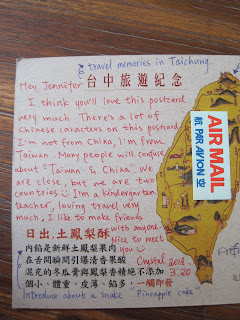 travel memories in Taichung.
台中旅遊紀念
Hey Jennifer
I think you'll love this postcard
very much There's a lot of
Chinese caracters on this postcard
I'm not from China, I'm from
Taiwan. Many people will confuse
about "Taiwan & China". We
are close, but we are two
countries I'm a kindergarten
teacher, loving travel very
much, I like to make friends
with anyone.
Nice to meet
you
AIR MAIL
航 PAR AVION 空
日出.土鳳梨酥
內餡是新鮮土鳳梨果肉
在舌間瞬間引爆清香果酸
混充的冬瓜膏與鳳梨香精絕不添加
個小、體重、皮薄、餡多
一觸即發
Crystal 2012.
3.20
Introduce about a snake "Pineapple cake"